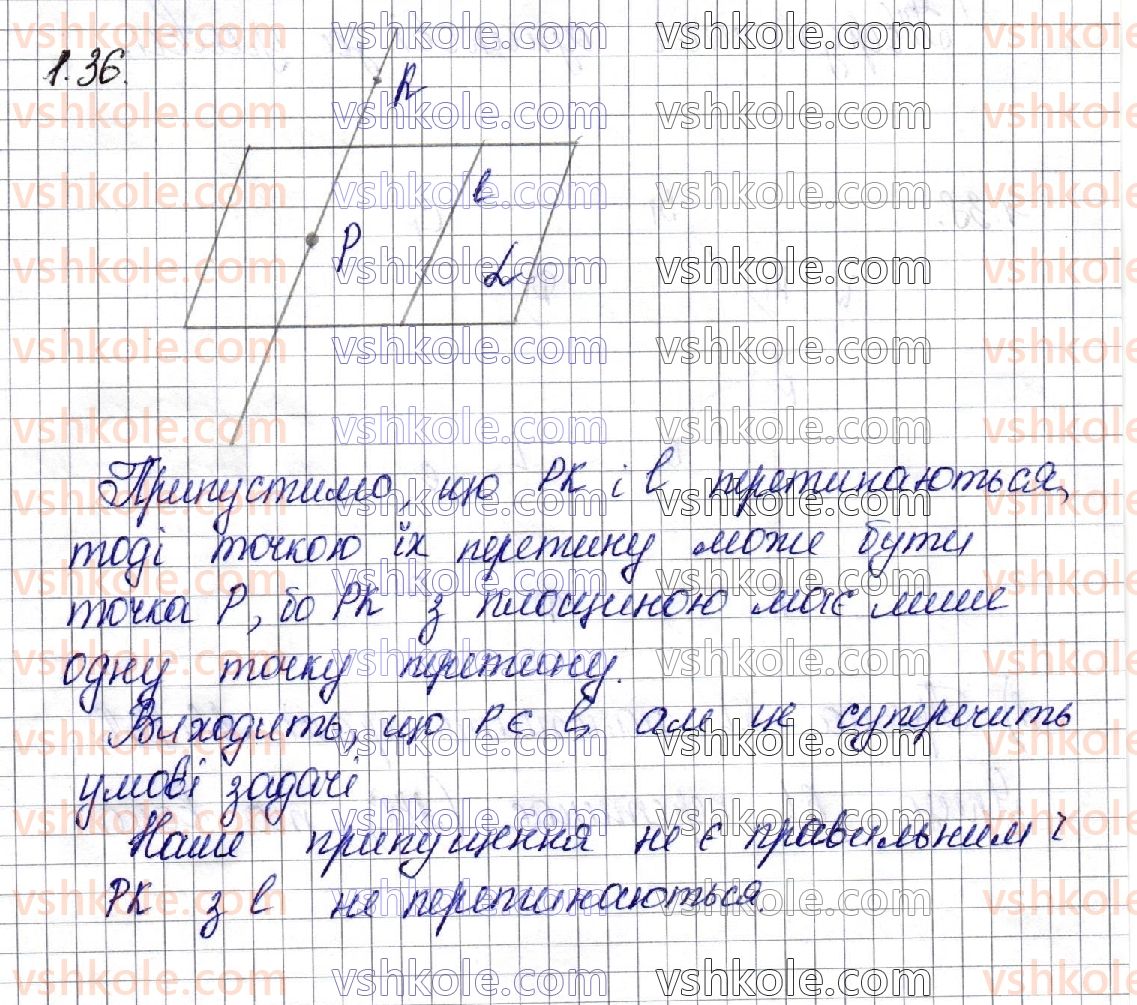 1.36.
R
l
P
L
Припустимо, що PK і l перетинаються,
тоді точкою їх перетину може бути
точка P, бо PK з площиною має лише
одну точку перетину.
Виходить, що P є l, але це суперечить
умові задачі
Наше припущення не є правильним і
PK з l не перетинаються.
vshkole.com